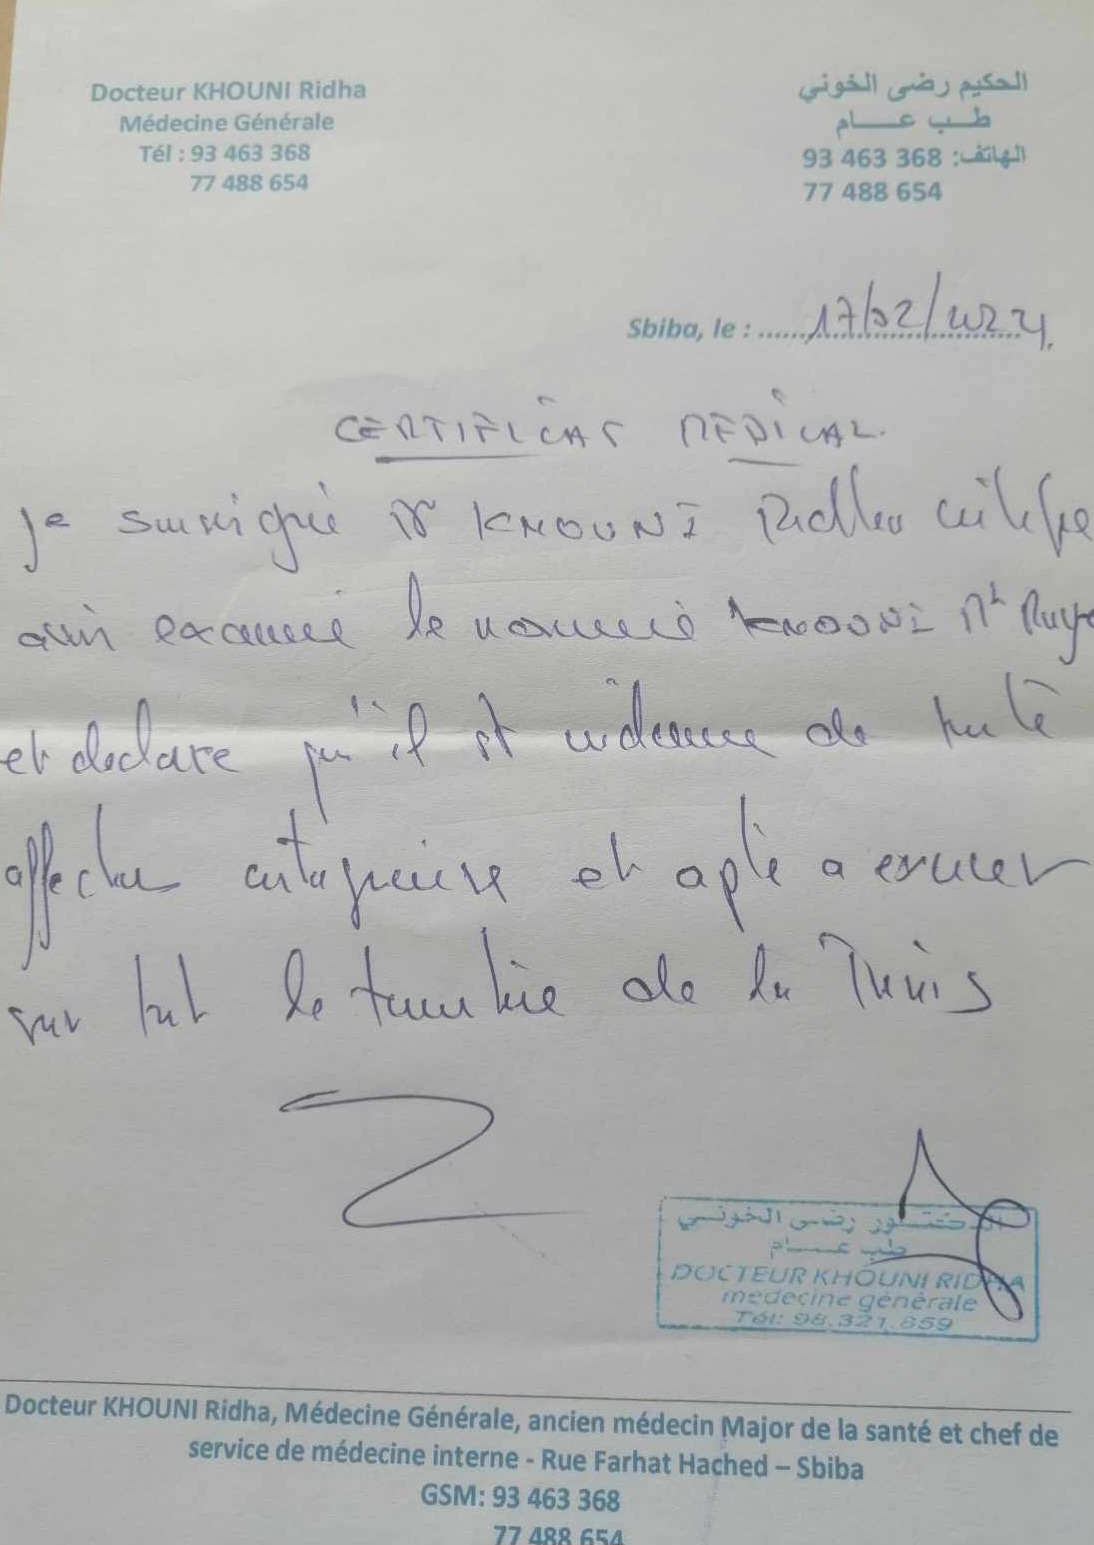 Docteur KHOUNI Ridha
Médecine Générale
Tél : 93 463 368
77 488 654
الحكيم رضى الخوني
طب عام
الهاتف: 93 463 368
77 488 654
Sbiba, le : 17/02/2024
CERTIFICAT MEDICAL
Je soussigné Dr KHOUNI Ridha certifie
avoir examiné le nommé KHOUNI
et declare qu'il est indemne de toute
affection contagieuse et apte a exercer
sur tout le territoire de la Tunis
الدكتور رضى الخوني
طب عام
DOCTEUR KHOUNI RIDHA
médecine générale
Tél: 98.321.859
Docteur KHOUNI Ridha, Médecine Générale, ancien médecin Major de la santé et chef de
service de médecine interne - Rue Farhat Hached – Sbiba
GSM: 93 463 368
77 488 654